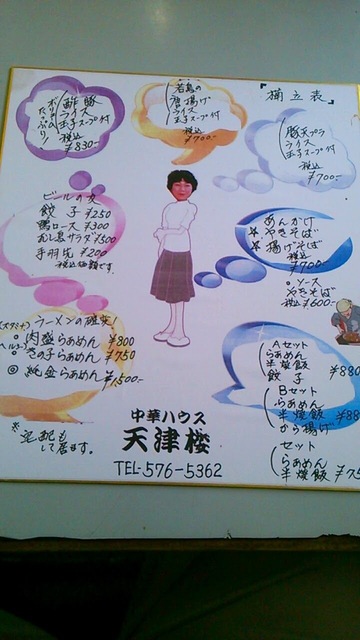 『献立表』
酢豚
ライス
玉子スープ付
ボリューム
たっぷり!
税込
¥830-
若鳥の
唐揚げ
ライス
玉子スープ付
税込
¥700-
豚天プラ
ライス
玉子スープ付
税込
¥700-
ビールの友
餃子 ¥250
鴨ロース ¥300
むし鳥サラダ ¥300
手羽先 ¥200
税込価額です。
☆ あんかけ
やきそば
☆ 揚げそば
税込 ¥700-
○ソース
やきそば
税込 ¥600-
ラーメンの確実!
(スタミナ)
○肉盛らぁめん ¥800
(ヘルシー)
○きの子らぁめん ¥750
◎ 純金らぁめん ¥1,500-
Aセット
らぁめん
半焼飯
餃子
¥880
Bセット
らぁめん
半焼飯
から揚げ
¥88
セット
らぁめん
半焼飯 ¥75
※宅配も
して居ます。
中華ハウス
天津楼
TEL-576-5362